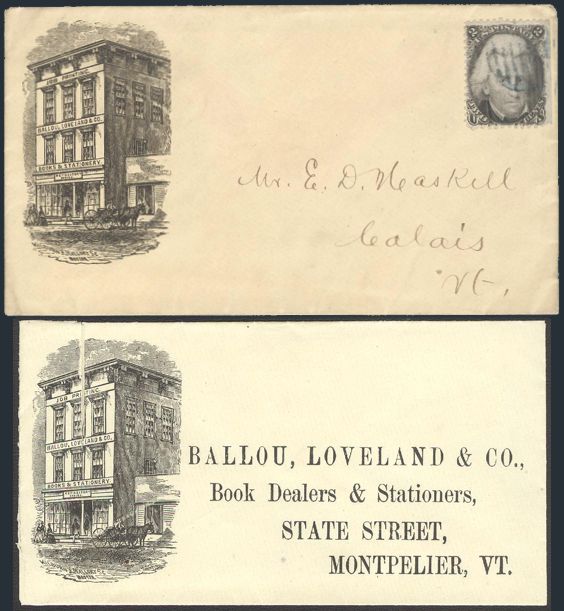 JOB PRINTING.
BALLOU, LOVELAND & CO.
BOOKS & STATIONERY
MALLORY Sc
BOSTON
2 POSTAGE 2
Mr. E. D. Haskell
Calais
Vt.
JOB PRINTING.
BALLOU, LOVELAND & CO.
BOOKS & STATIONERY.
MALLORY Sc
BOSTON
BALLOU, LOVELAND & CO.,
Book Dealers & Stationers,
STATE STREET,
MONTPELIER, VT.